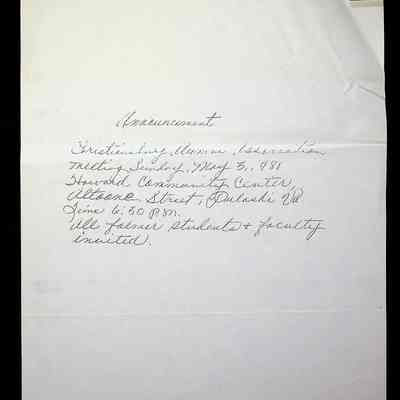 Announcement
Christiansburg Alumni Association
Meeting Sunday, May 3, 1981
Howard Community Center,
Altoona Street, Pulaski Va
Time 6:30 P.M.
All former students & faculty
invited.